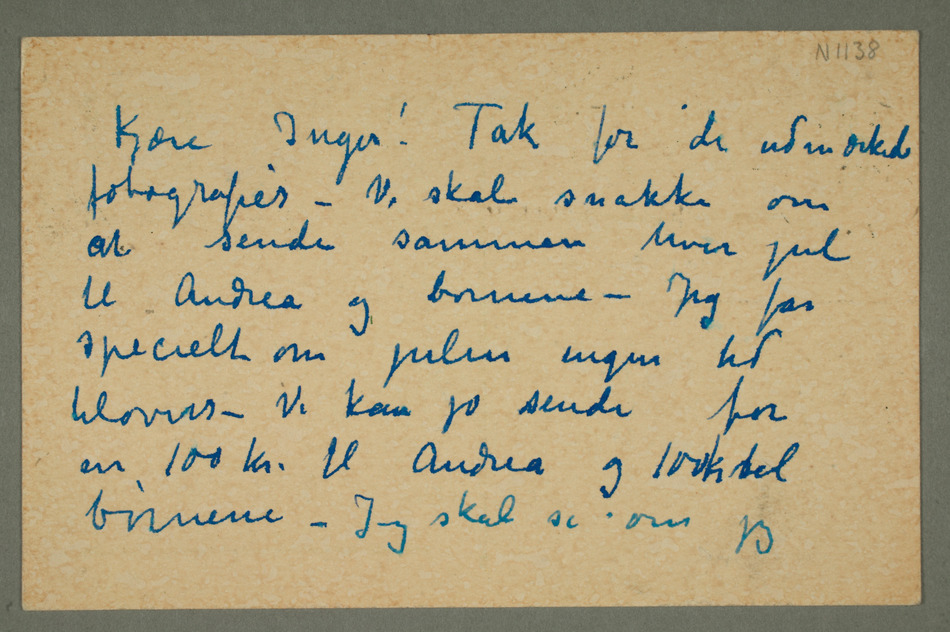 N 1138
Kjære Inger! Tak for de udmærkede
fotografier – Vi skal snakke om
at sende sammen hver jul
til Andrea og børnene – Jeg får
specielt om julen ingen tid
tilovers – Vi kan jo sende for
en 100 kr. til Andrea og 100 kr til
børnene – Jeg skal se om jeg